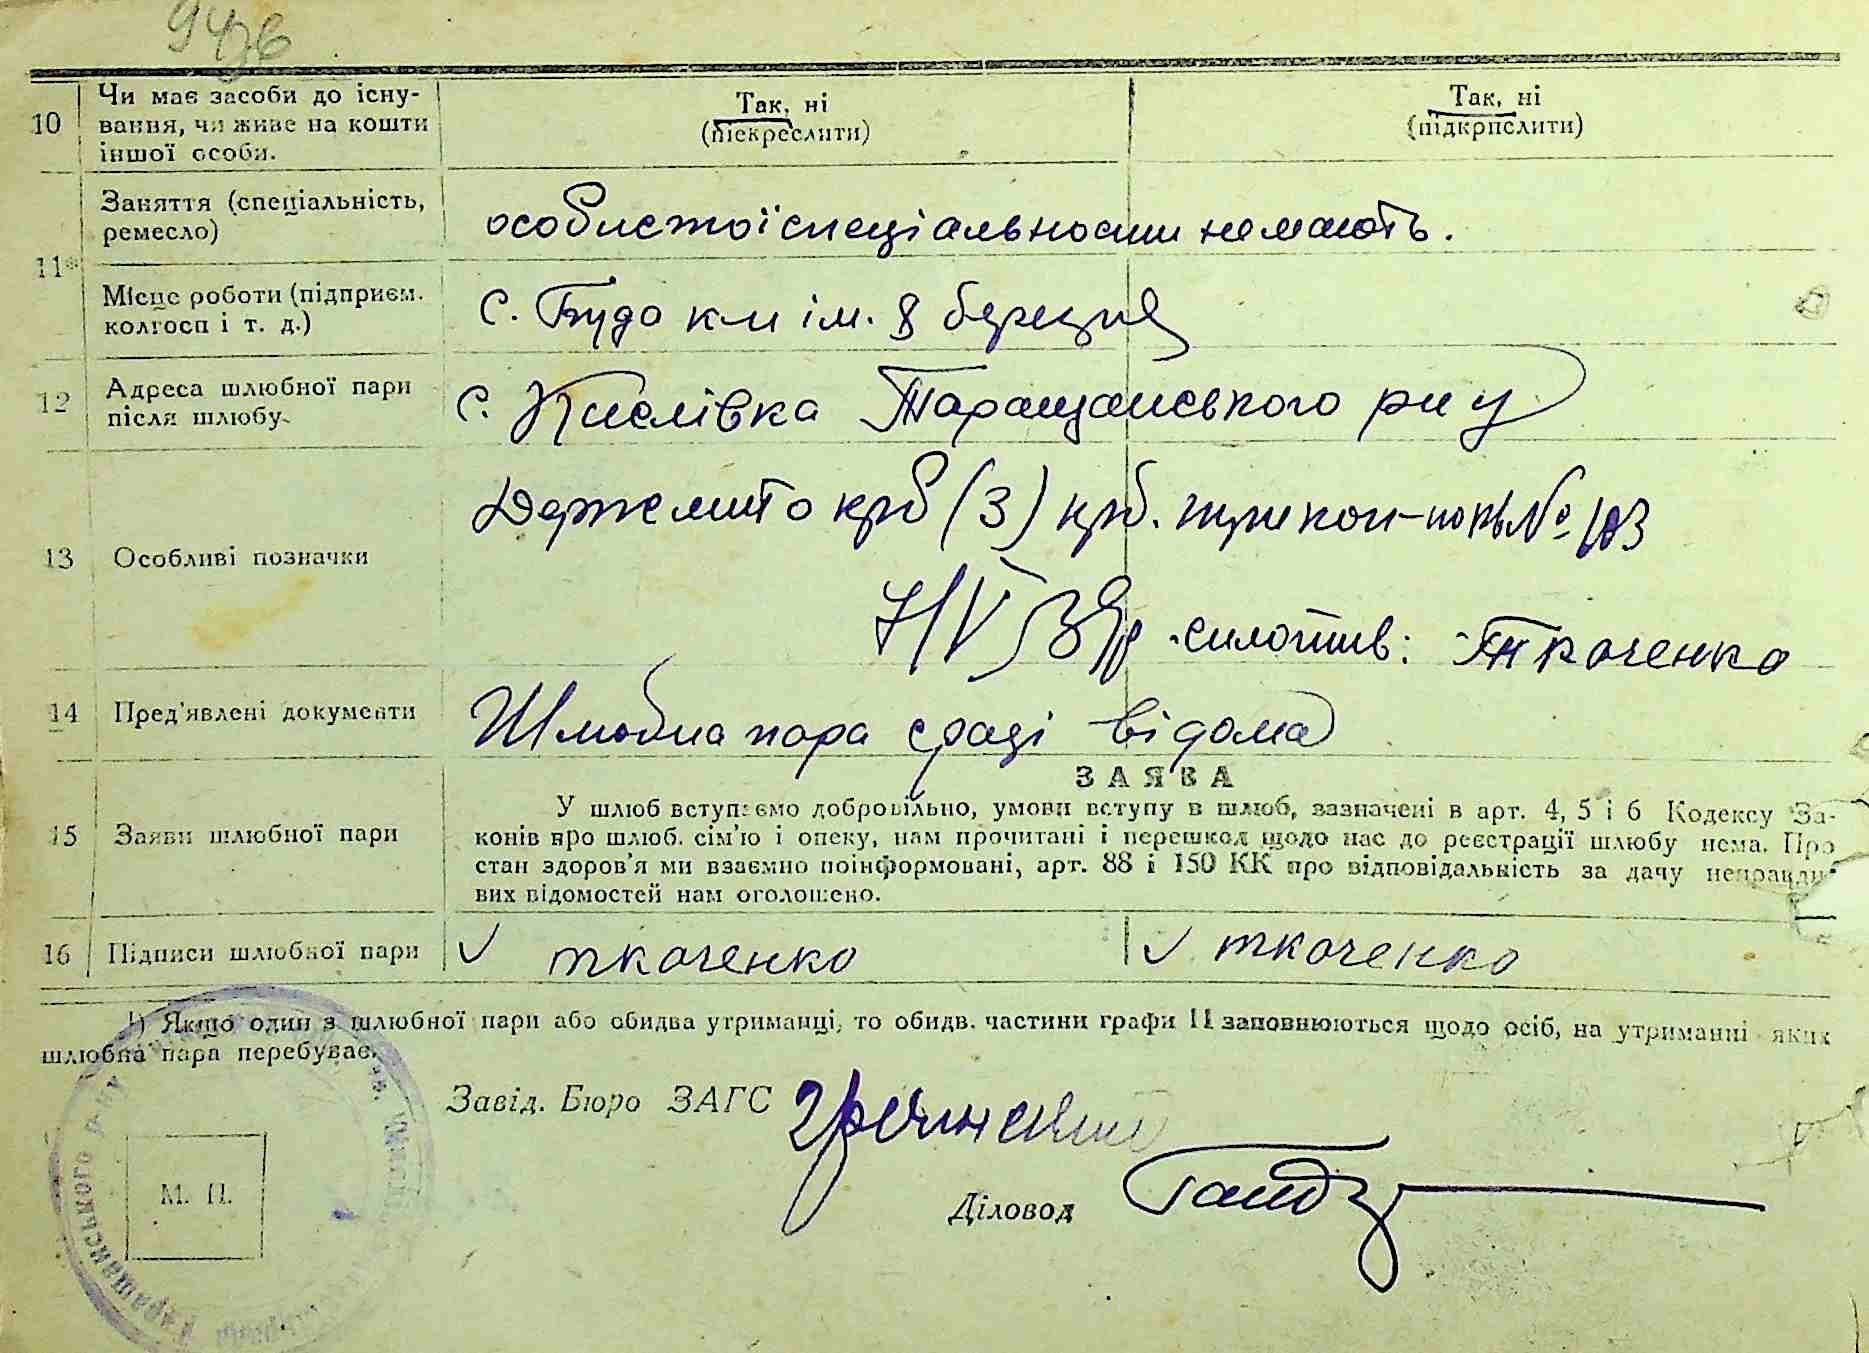 10 Чи має засоби до існу-
вання, чи живе на кошти
іншої особи.
Так, ні
(піскреслити)
Так, ні
(підкрпслити)
11*
Заняття (спеціальність,
ремесло)
особистої спеціальности немають.
Місце роботи (підприєм.
колгосп і т. д.)
с. Буда ім. 8 березня
12 Адреса шлюбної пари
після шлюбу.
с. Кислівка Таращанського р-ну
13 Особливі позначки
Держмито крб (3) крб. №
сплотив: Ткаченко
14 Пред'явлені документи
Шлюбна пара с/раді відома
ЗАЯВА
15 Заяви шлюбної пари
У шлюб вступаємо добровільно, умови вступу в шлюб, зазначені в арт. 4, 5 і 6 Кодексу За-
конів про шлюб. сім'ю і опеку, нам прочитані і перешкод щодо нас до реєстрації шлюбу нема. Про
стан здоров'я ми взаємно поінформовані, арт. 88 і 150 КК про відповідальність за дачу неправди-
вих відомостей нам оголошено.
16 Підписи шлюбної пари
ткаченко
ткаченко
¹) Якщо один з шлюбної пари або обидва утриманці, то обидв. частини графи 11 заповнюються щодо осіб, на утриманні яких
шлюбна пара перебуває.
Завід. Бюро ЗАГС
М. П.
Діловод
Таращанського р-ну